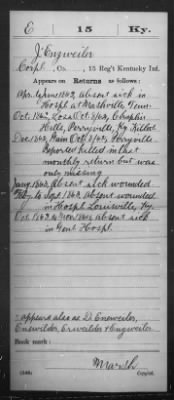 E | 15 | Ky.
J. Enzweiler
Corpl., Co. , 15 Reg't Kentucky Inf.
Appears on Returns as follows:
Apr. & June 1862, absent sick in
Hospt at Nashville, Tenn.
Oct. 1862, Loss Oct. 8/62, Chaplin
Hills, Perryville, Ky. Killed
Dec. 1862, Oct. 8/62, Perryville
Reported killed in that
monthly return but was
only missing
Jany. 1863, absent sick wounded
Feby. to Sept. 1863, Absent wounded
in Hospl Louisville, Ky.
Oct. 1863 to Nov. 1864, absent sick
in Genl. Hospl.
appears also as D. Eneweiler,
Enewilder, Erwalder & Enzweiler
Book mark:
Marsh
Copyist.